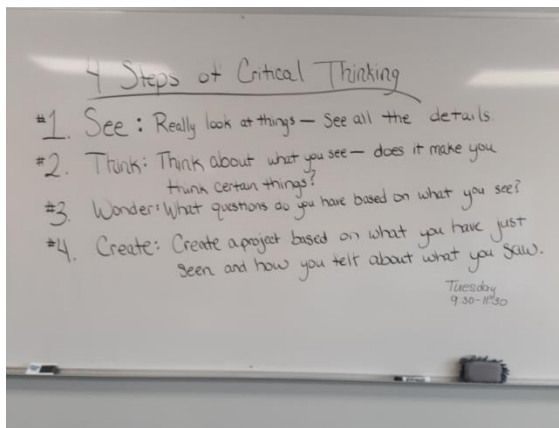 4 Steps of Critical Thinking
#1. See: Really look at things — See all the details.
#2. Think: Think about what you see — does it make you
think certain things?
#3. Wonder: What questions do you have based on what you see?
#4. Create: Create a project based on what you have just
seen and how you felt about what you saw.
Tuesday
9:30-11:30